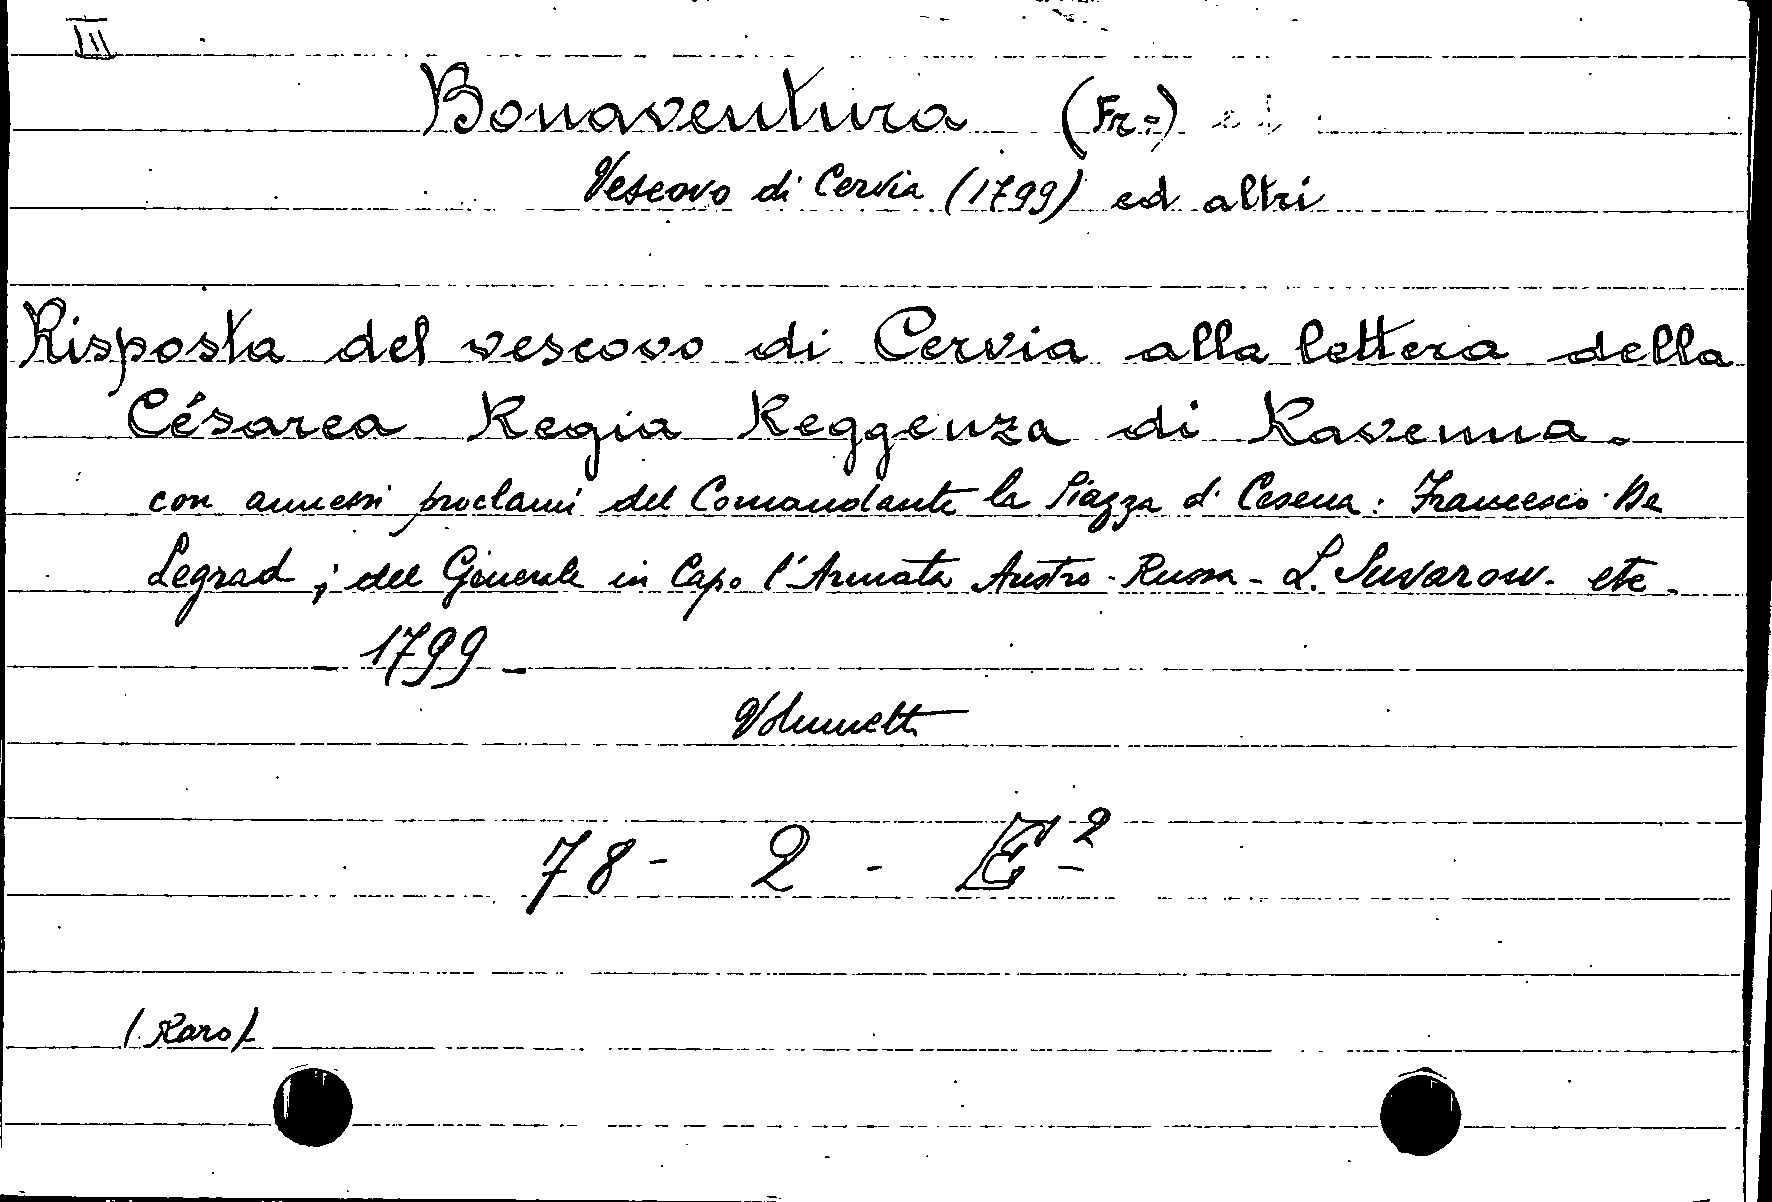 III
Bonaventura (Fr=) ed
Vescovo di Cervia (1799) ed altri
Risposta del vescovo di Cervia alla lettera della
Césarea Regia Reggenza di Ravenna.
con annessi proclami del Comandante la Piazza di Cesena: Francesco De
Legrad; del Generale in Capo l'Armata Austro-Russa - L. Suvarow. etc.
- 1799 -
Volumetti
78 - 2 - E²
(Raro)